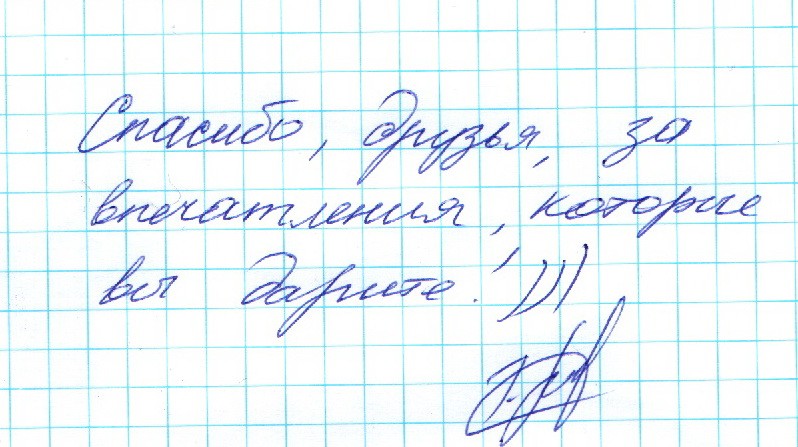 Спасибо, друзья, за
впечатления, которые
вы дарите! )))